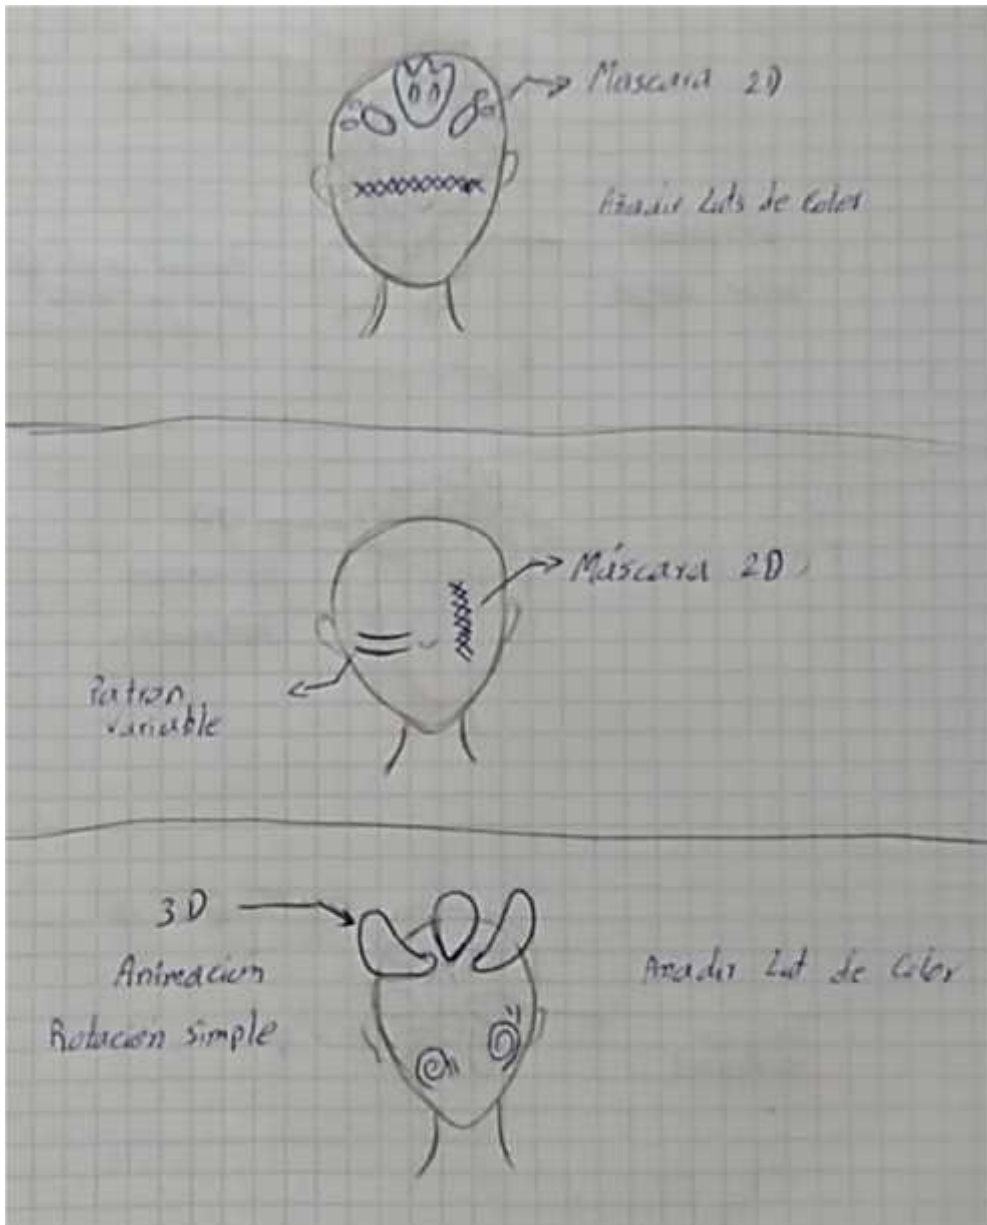 Mascara 2D
Añadir Luts de Color
Máscara 2D
Patron
Variable
3D
Animacion
Rotación Simple
Anadir Lut de Color